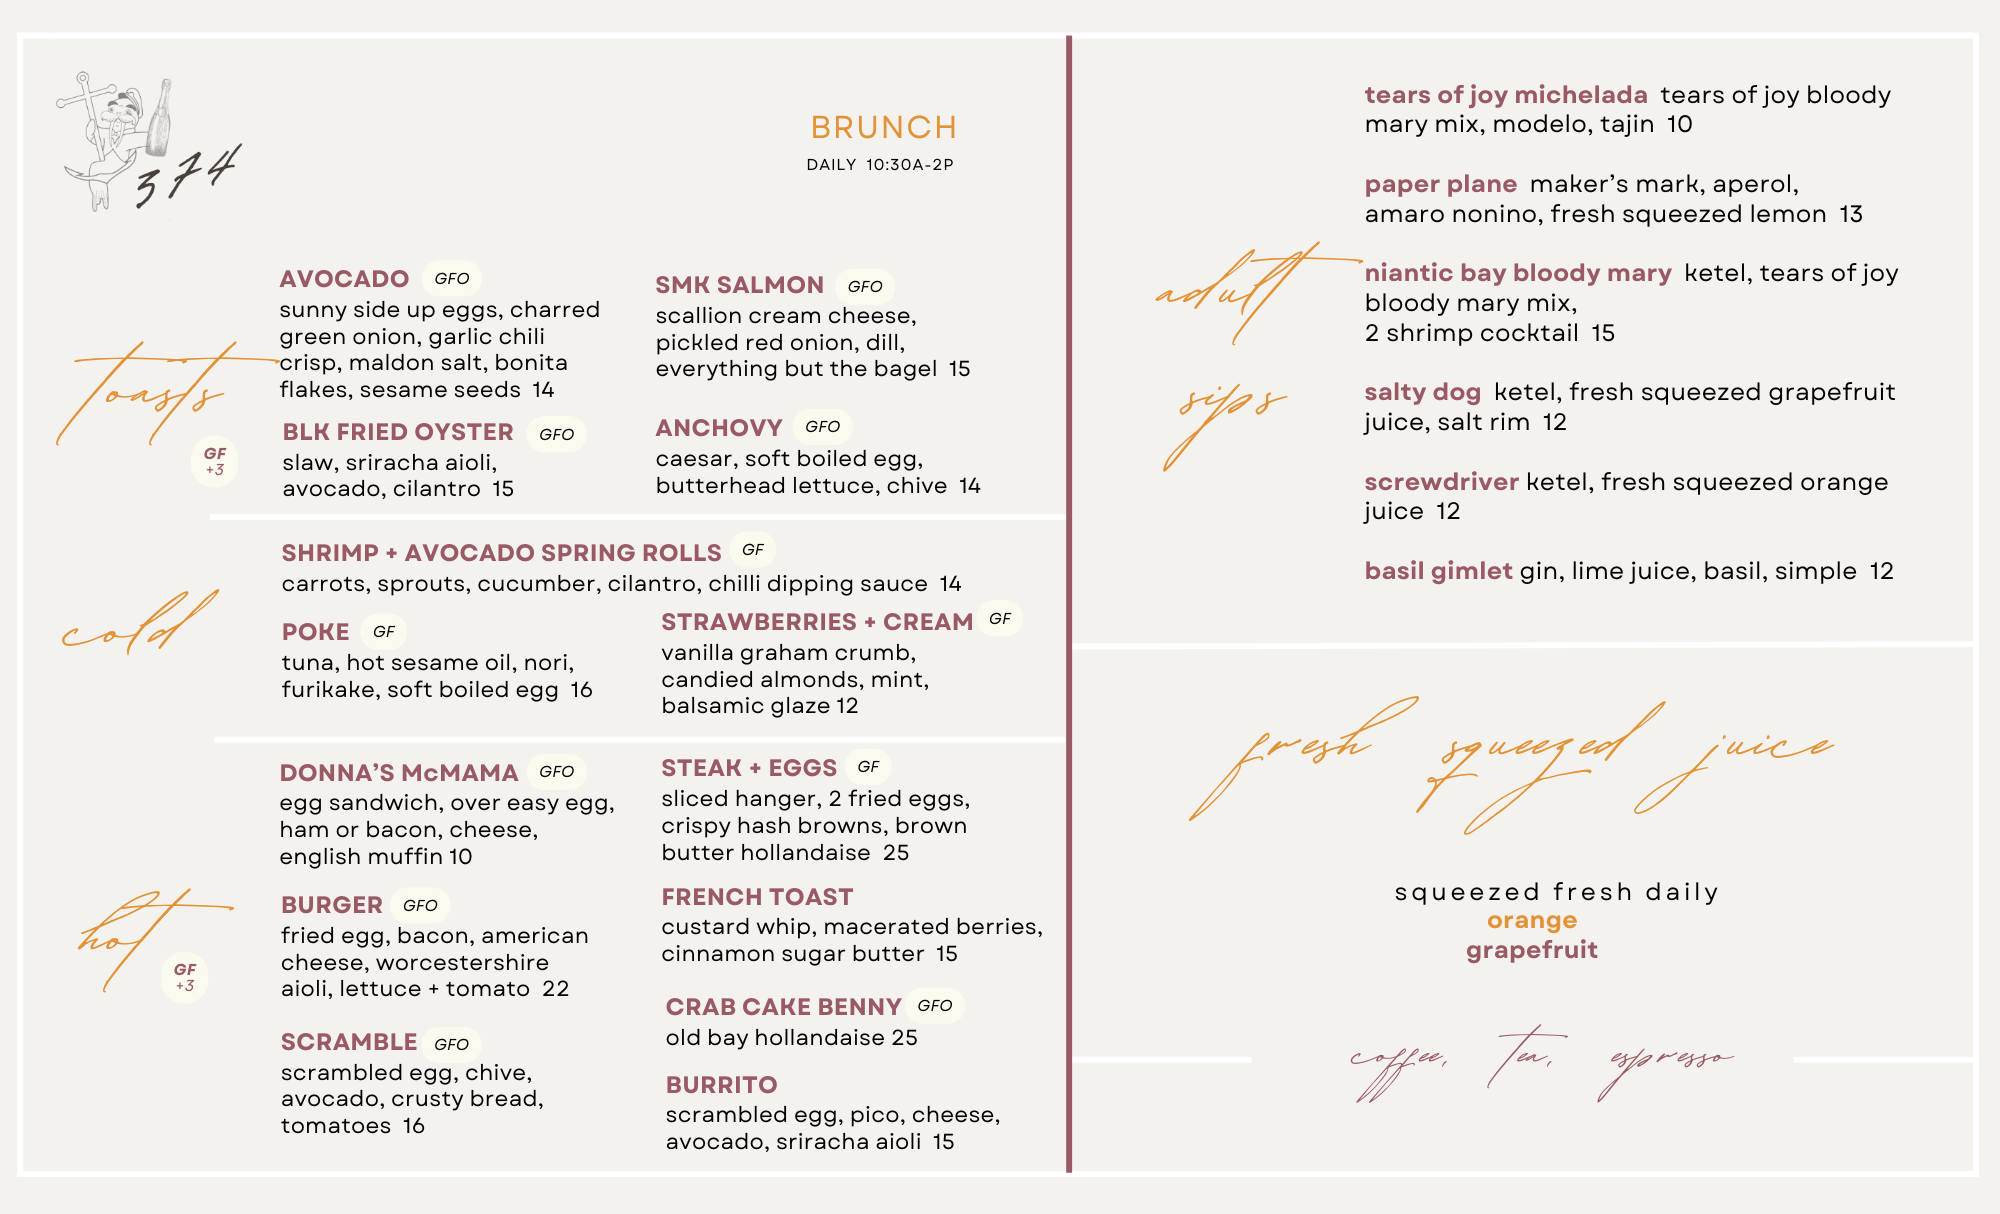 374
BRUNCH
DAILY 10:30A-2P
toasts
GF
+3
AVOCADO GFO
sunny side up eggs, charred
green onion, garlic chili
crisp, maldon salt, bonita
flakes, sesame seeds 14
BLK FRIED OYSTER GFO
slaw, sriracha aioli,
avocado, cilantro 15
SMK SALMON GFO
scallion cream cheese,
pickled red onion, dill,
everything but the bagel 15
ANCHOVY GFO
caesar, soft boiled egg,
butterhead lettuce, chive 14
cold
SHRIMP + AVOCADO SPRING ROLLS GF
carrots, sprouts, cucumber, cilantro, chilli dipping sauce 14
POKE GF
tuna, hot sesame oil, nori,
furikake, soft boiled egg 16
STRAWBERRIES + CREAM GF
vanilla graham crumb,
candied almonds, mint,
balsamic glaze 12
hot
GF
+3
DONNA'S McMAMA GFO
egg sandwich, over easy egg,
ham or bacon, cheese,
english muffin 10
BURGER GFO
fried egg, bacon, american
cheese, worcestershire
aioli, lettuce + tomato 22
SCRAMBLE GFO
scrambled egg, chive,
avocado, crusty bread,
tomatoes 16
STEAK + EGGS GF
sliced hanger, 2 fried eggs,
crispy hash browns, brown
butter hollandaise 25
FRENCH TOAST
custard whip, macerated berries,
cinnamon sugar butter 15
CRAB CAKE BENNY GFO
old bay hollandaise 25
BURRITO
scrambled egg, pico, cheese,
avocado, sriracha aioli 15
adult
sips
tears of joy michelada tears of joy bloody
mary mix, modelo, tajin 10
paper plane maker's mark, aperol,
amaro nonino, fresh squeezed lemon 13
niantic bay bloody mary ketel, tears of joy
bloody mary mix,
2 shrimp cocktail 15
salty dog ketel, fresh squeezed grapefruit
juice, salt rim 12
screwdriver ketel, fresh squeezed orange
juice 12
basil gimlet gin, lime juice, basil, simple 12
fresh squeezed juice
squeezed fresh daily
orange
grapefruit
coffee, tea, espresso